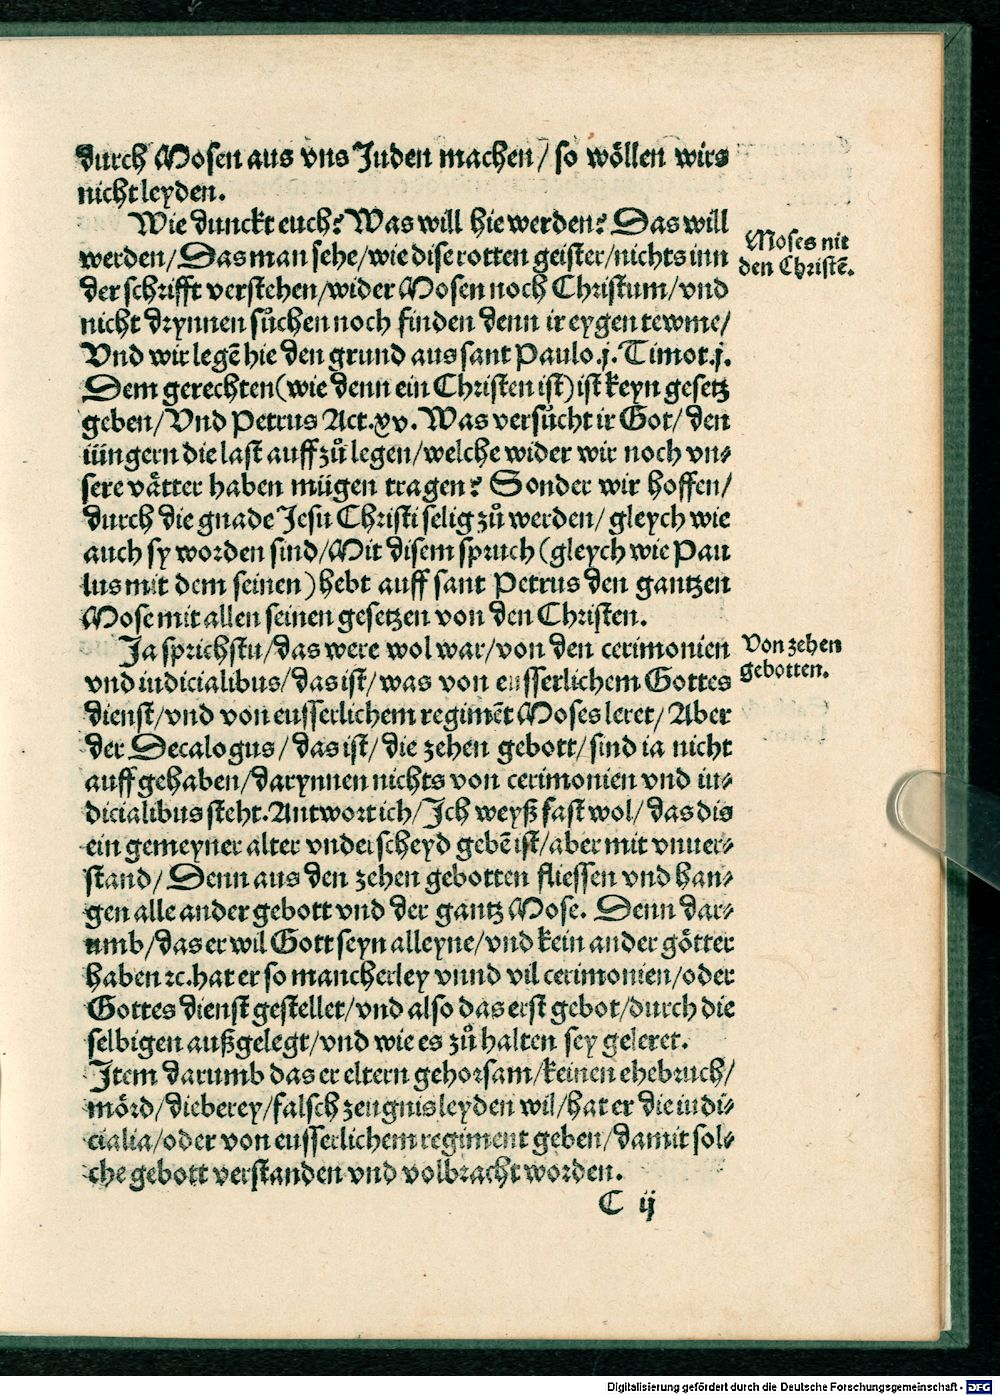 durch Mosen aus vns Juden machen/ so wöllen wirs
nicht leyden.
Wie dunckt euch? Was will hie werden? Das will
werden/ Das man sehe/ wie dise rotten geister/ nichts inn
der schrifft verstehen/ wider Mosen noch Christum/ vnd
nicht drynnen sůchen noch finden denn ir eygen tewme/
Vnd wir legē hie den grund aus sant Paulo. j. Timot. j.
Dem gerechten (wie denn ein Christen ist) ist keyn gesetz
geben/ Vnd Petrus Act. xv. Was versůcht ir Got/ den
iüngern die last auff zů legen/ welche wider wir noch vn⸗
sere vätter haben mügen tragen? Sonder wir hoffen/
durch die gnade Jesu Christi selig zů werden/ gleych wie
auch sy worden sind/ Mit disem spruch (gleych wie Pau
lus mit dem seinen) hebt auff sant Petrus den gantzen
Mose mit allen seinen gesetzen von den Christen.
Ja sprichstu/ das were wol war/ von den cerimonien
vnd iudicialibus/ das ist/ was von eusserlichem Gottes
dienst/ vnd von eusserlichem regimēt Moses leret/ Aber
der Decalogus/ das ist/ die zehen gebott/ sind ia nicht
auff gehaben/ darynnen nichts von cerimonien vnd iu⸗
dicialibus steht. Antwort ich/ Ich weyß fast wol/ das dis
ein gemeyner alter vnderscheyd gebē ist/ aber mit vnuer⸗
stand/ Denn aus den zehen gebotten fliessen vnd han⸗
gen alle ander gebott vnd der gantz Mose. Denn dar⸗
umb/ das er wil Gott seyn alleyne/ vnd kein ander götter
haben ꝛc. hat er so mancherley vnnd vil cerimonien/ oder
Gottes dienst gestellet/ vnd also das erst gebot/ durch die
selbigen außgelegt/ vnd wie es zů halten sey geleret.
Item darumb das er eltern gehorsam/ keinen ehebruch/
mörd/ dieberey/ falsch zeugnis leyden wil/ hat er die iudi⸗
cialia/ oder von eusserlichem regiment geben/ damit sol⸗
che gebott verstanden vnd volbracht worden.
C ij
Moses nit
den Christē.
Von zehen
gebotten.
Digitalisierung gefördert durch die Deutsche Forschungsgemeinschaft - DFG